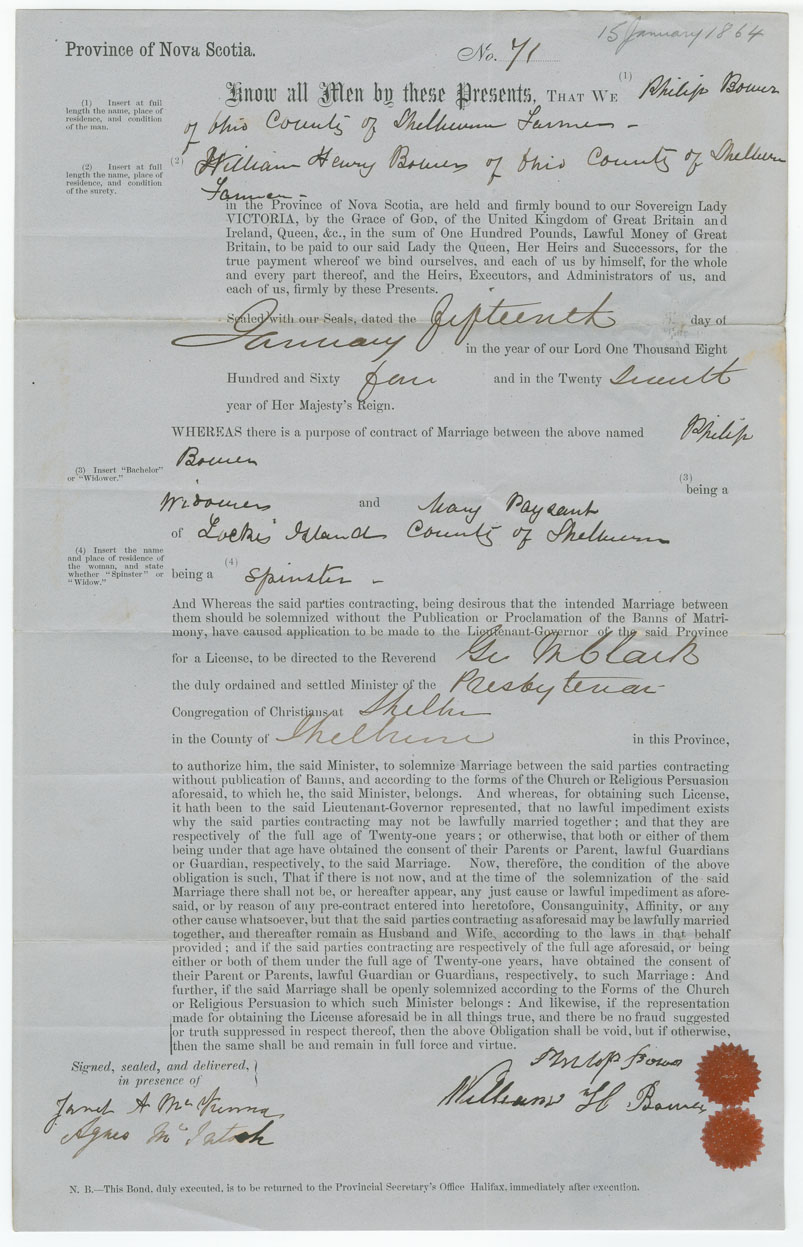 15 January 1864
Province of Nova Scotia.
No. 71
Know all Men by these Presents, THAT WE (1) Philip Bower
(1) Insert at full
length the name, place of
residence, and condition
of the man.
of Ohio County of Shelburne Farmer -
(2) Insert at full
length the name, place of
residence, and condition
of the surety.
(2) William Henry Bower of Ohio County of Shelburn
Farmer -
in the Province of Nova Scotia, are held and firmly bound to our Sovereign Lady
VICTORIA, by the Grace of GOD, of the United Kingdom of Great Britain and
Ireland, Queen, &c., in the sum of One Hundred Pounds, Lawful Money of Great
Britain, to be paid to our said Lady the Queen, Her Heirs and Successors, for the
true payment whereof we bind ourselves, and each of us by himself, for the whole
and every part thereof, and the Heirs, Executors, and Administrators of us, and
each of us, firmly by these Presents.
Sealed with our Seals, dated the fifteenth day of
January in the year of our Lord One Thousand Eight
Hundred and Sixty four and in the Twenty Seventh
year of Her Majesty's Reign.
WHEREAS there is a purpose of contract of Marriage between the above named Philip
Bower
(3) Insert "Bachelor"
or "Widower."
(3)
being a
Widower and Mary Paysant
of Lockes Island County of Shelburn
(4) Insert the name
and place of residence of
the woman, and state
whether "Spinster" or
"Widow."
being a (4) Spinster -
And Whereas the said parties contracting, being desirous that the intended Marriage between
them should be solemnized without the Publication or Proclamation of the Banns of Matri-
mony, have caused application to be made to the Lieutenant-Governor of the said Province
for a License, to be directed to the Reverend Geo M Clark
the duly ordained and settled Minister of the Presbyterian
Congregation of Christians at Shelbu
in the County of Shelburne in this Province,
to authorize him, the said Minister, to solemnize Marriage between the said parties contracting
without publication of Banns, and according to the forms of the Church or Religious Persuasion
aforesaid, to which he, the said Minister, belongs. And whereas, for obtaining such License,
it hath been to the said Lieutenant-Governor represented, that no lawful impediment exists
why the said parties contracting may not be lawfully married together; and that they are
respectively of the full age of Twenty-one years; or otherwise, that both or either of them
being under that age have obtained the consent of their Parents or Parent, lawful Guardians
or Guardian, respectively, to the said Marriage. Now, therefore, the condition of the above
obligation is such, That if there is not now, and at the time of the solemnization of the said
Marriage there shall not be, or hereafter appear, any just cause or lawful impediment as afore-
said, or by reason of any pre-contract entered into heretofore, Consanguinity, Affinity, or any
other cause whatsoever, but that the said parties contracting as aforesaid may be lawfully married
together, and thereafter remain as Husband and Wife, according to the laws in that behalf
provided; and if the said parties contracting are respectively of the full age aforesaid, or being
either or both of them under the full age of Twenty-one years, have obtained the consent of
their Parent or Parents, lawful Guardian or Guardians, respectively, to such Marriage: And
further, if the said Marriage shall be openly solemnized according to the Forms of the Church
or Religious Persuasion to which such Minister belongs: And likewise, if the representation
made for obtaining the License aforesaid be in all things true, and there be no fraud suggested
or truth suppressed in respect thereof, then the above Obligation shall be void, but if otherwise,
then the same shall be and remain in full force and virtue.
Signed, sealed, and delivered,
in presence of
Philip Bower
William H Bower
Janet A McKenna
Agnes
N. B.—This Bond, duly executed, is to be returned to the Provincial Secretary's Office Halifax, immediately after execution.